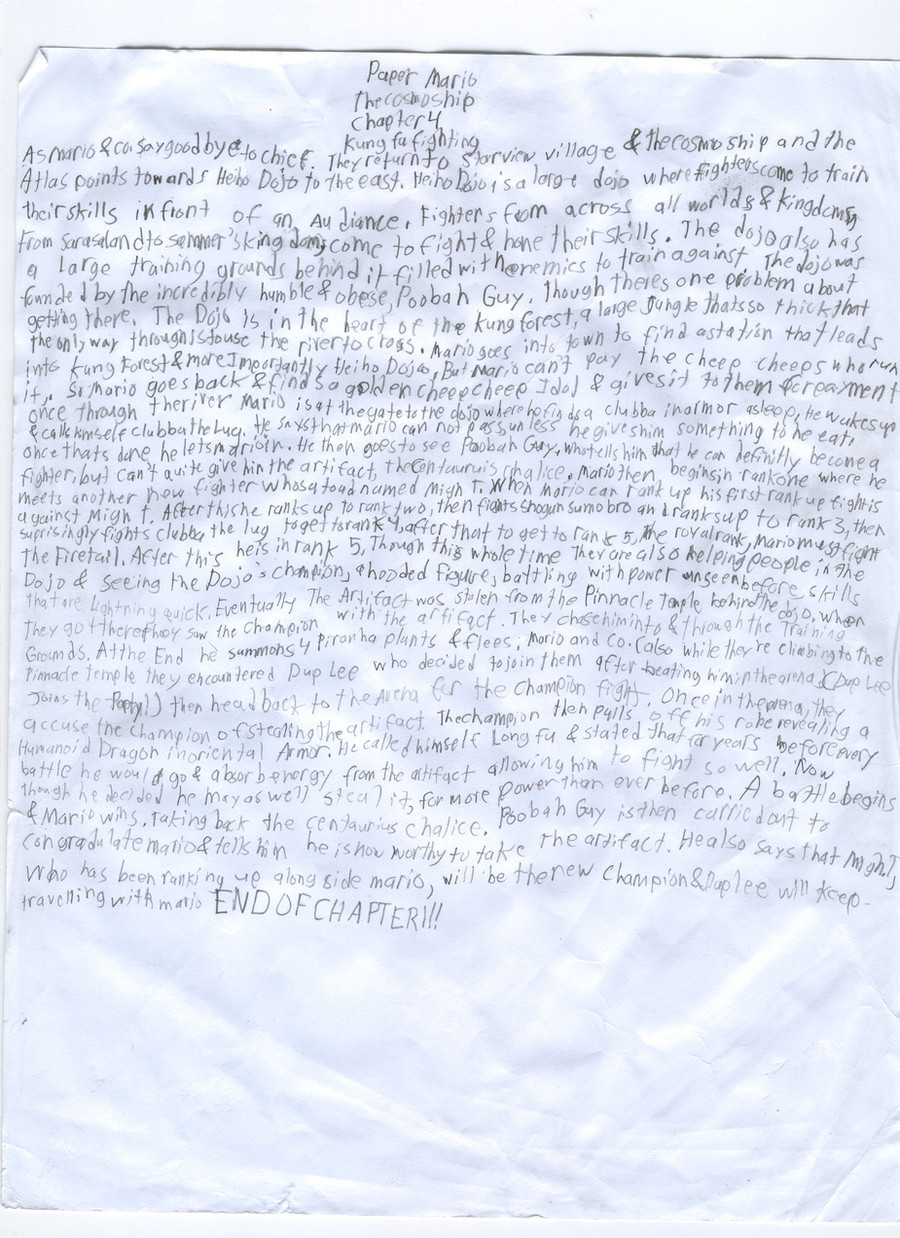 Paper Mario
The cosmo ship
Chapter 4
Kung fu fighting
As Mario & co. say good bye to chief. They return to starview village & the cosmo ship and the
Atlas points towards Heiho Dojo to the east. Heiho Dojo is a large dojo where fighters come to train
their skills in front of an Audiance. Fighters from across all worlds & kingdoms,
From sarasaland to summer's kingdom, come to fight & hone their skills. The dojo also has
a large training grounds behind it filled with enemies to train against. The dojo was
founded by the incredibly humble & obese, Poobah Guy. Though theres one problem about
getting there. The Dojo is in the heart of the Kung forest, a large Jungle thats so thick that
the only way through is to use the river to cross. Mario goes into town to find a station that leads
into Kung Forest & more Importantly Heiho Dojo, But Mario can't pay the cheep cheeps who run
it. So Mario goes back & finds a golden cheep cheep Idol & gives it to them as repayment
once through the river Mario is at the gate to the dojo where he finds a clubba in armor asleep, He wakes up
& calls himself clubba the Lug. He says that mario can not pass unless he gives him something to he eat.
once thats done he lets mario in. He then goes to see Poobah Guy, who tells him that he can definitly become a
fighter, but can't quite give him the artifact, the Centaurius chalice. Mario then begins in rank one where he
meets another new fighter whos a toad named Migh T. When mario can rank up his first rank up fight is
against Migh T. After this he ranks up to rank two, then fights shogun sumo bro and ranks up to rank 3, then
suprisingly fights clubba the lug to get to rank 4, after that to get to rank 5, the royal rank, Mario must fight
the Firetail. After this he is in rank 5, Though this whole time They are also helping people in the
Dojo & seeing the Dojo's champion, a hooded figure, battling with power unseen before, skills
that are lightning quick. Eventually The Artifact was stolen from the Pinnacle Temple behind the dojo, when
they got there they saw the Champion with the artifact. They chase him into & through the Training
Grounds. At the End he summons 4 piranha plants & flees. Mario and co. (also while they're climbing to the
Pinnacle temple they encountered Dup Lee who decided to join them after beating him in the arena.) (Dup Lee
Joins the Party!) then head back to the Arena for the Champion fight. Once in the arena, they
accuse the champion of stealing the artifact. The champion then pulls off his robe revealing a
Humanoid Dragon in oriental Armor. He called himself Long fu & stated that for years before every
battle he would go & absorb energy from the artifact allowing him to fight so well. Now
though he decided he may as well steal it, for more power than ever before. A battle begins
& Mario wins. Taking back the centaurius chalice. Poobah Guy is then carried out to
congradulate mario & tells him he is now worthy to take the artifact. He also says that Migh T,
who has been ranking up along side mario, will be the new Champion & Dup lee will keep
travelling with mario END OF CHAPTER!!!